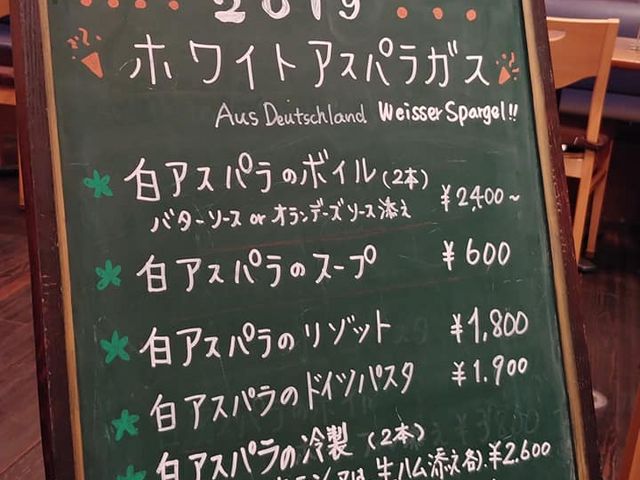 2019
ホワイトアスパラガス
Aus Deutschland Weisser Spargel!!
白アスパラのボイル(2本) ¥2,400~
バターソース or オランデーズソース添え
白アスパラのスープ ¥600
白アスパラのリゾット ¥1,800
白アスパラのドイツパスタ ¥1.900
白アスパラの冷製(2本)
生ハム添え各).¥2.600